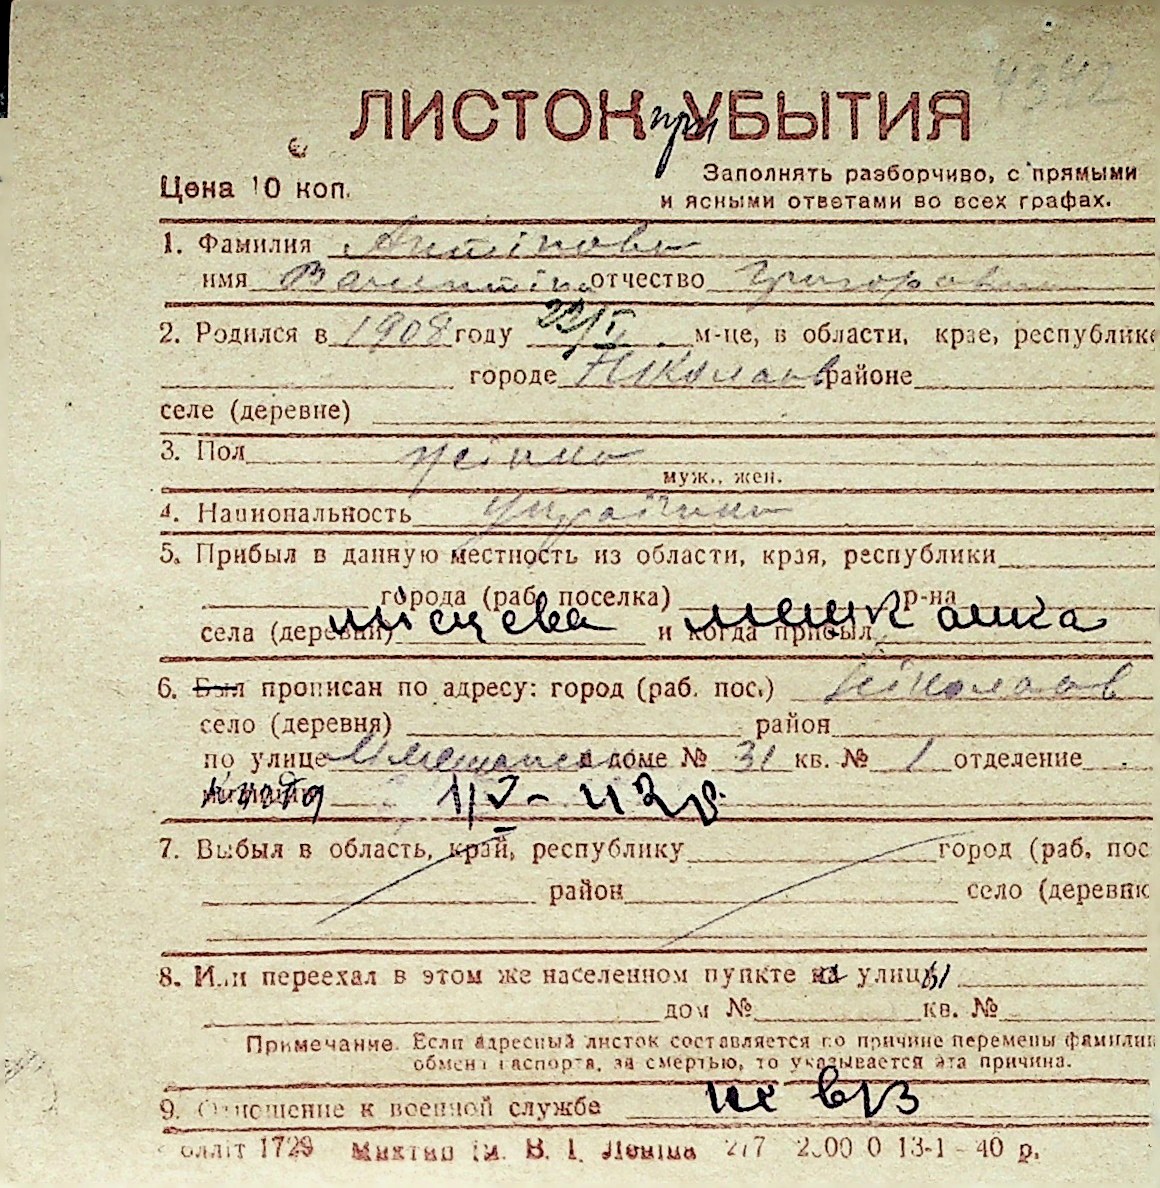 4342
ЛИСТОК при УБЫТИЯ
Цена 10 коп.
Заполнять разборчиво, с прямыми
и ясными ответами во всех графах.
1. Фамилия Антіпова
имя Валентіна отчество Григоровна
2. Родился в 1908 году 22/I м-це, в области, крае, республике
городе Ніколаев районе
селе (деревне)
3. Пол жіноч
муж., жен.
4. Национальность Українка
5. Прибыл в данную местность из области, края, республики
города (раб. поселка) р-на
села (деревни) місцева и когда прибыл мешканка
6. Был прописан по адресу: город (раб. пос.) Ніколаев
село (деревня) район
по улице в доме № 31 кв. № 1 отделение
милиции 1/V - 42 р.
7. Выбыл в область, край, республику город (раб. пос
район село (деревню
8. Или переехал в этом же населенном пункте на улицы
дом № кв. №
Примечание. Если адресный листок составляется по причине перемены фамилии
обмена паспорта, за смертью, то указывается эта причина.
9. Отношение к военной службе не в/з
облліт 1729 Миктип ім. В. І. Леніна 277 2000 0 13-1-40 р.